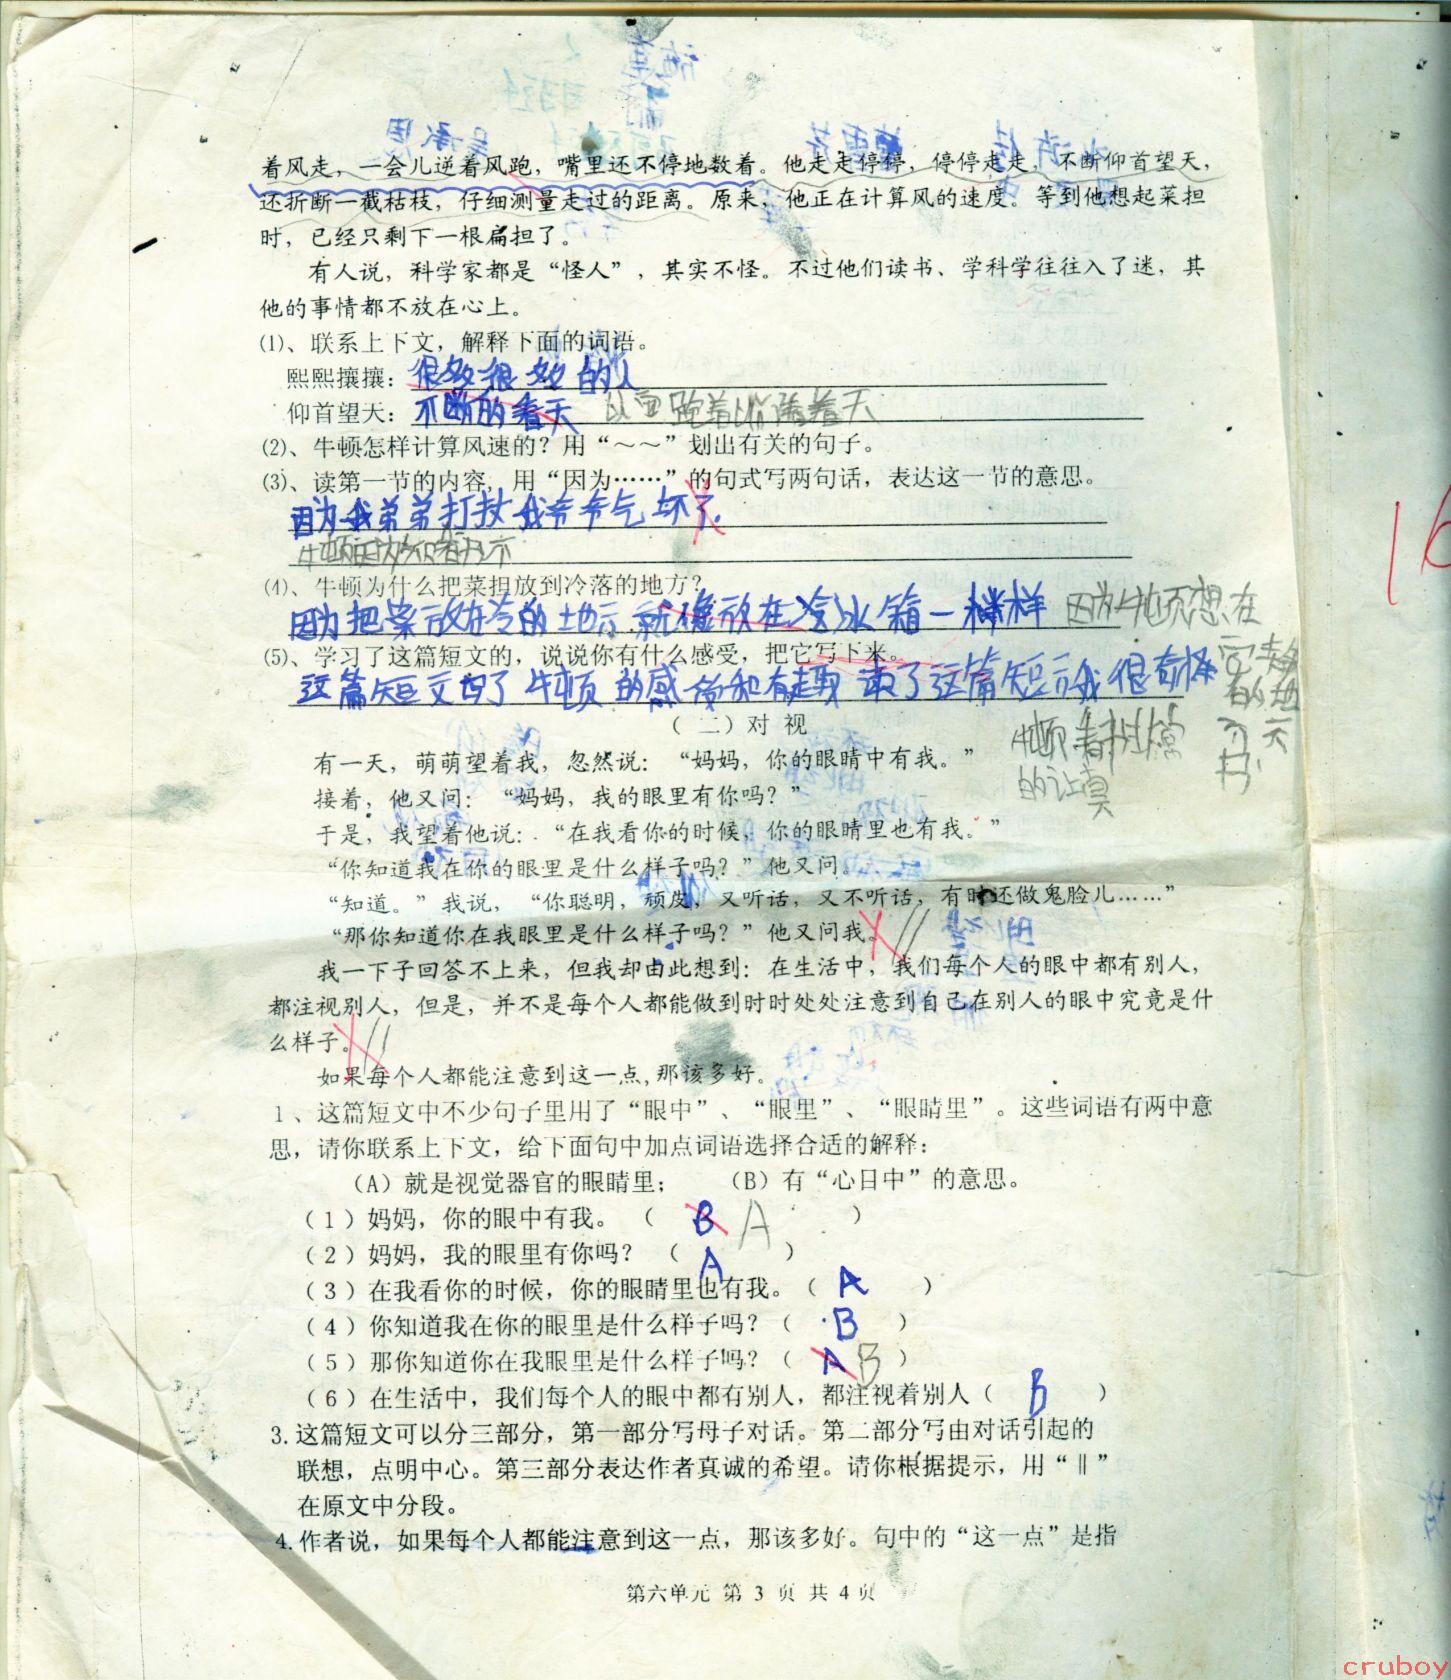 着风走，一会儿逆着风跑，嘴里还不停地数着。他走走停停，停停走走，不断仰首望天，
还折断一截枯枝，仔细测量走过的距离。原来，他正在计算风的速度。等到他想起菜担
时，已经只剩下一根扁担了。
有人说，科学家都是“怪人”，其实不怪。不过他们读书、学科学往往入了迷，其
他的事情都不放在心上。
⑴、联系上下文，解释下面的词语。
熙熙攘攘：很多很多的人
仰首望天：不断的看天
⑵、牛顿怎样计算风速的？用“～～”划出有关的句子。
⑶、读第一节的内容，用“因为……”的句式写两句话，表达这一节的意思。
因为我弟弟打扙我爷爷气坏了.
⑷、牛顿为什么把菜担放到冷落的地方？
因为把菜放在冷的地方就像放在冷冰箱一样样 因为牛顿想在
安静的地方看书
⑸、学习了这篇短文的，说说你有什么感受，把它写下来。
这篇短文写了牛顿的感觉和有趣 读了这篇短文我很奇怪
牛顿看书非常
的认真
（二）对 视
有一天，萌萌望着我，忽然说：“妈妈，你的眼睛中有我。”
接着，他又问：“妈妈，我的眼里有你吗？”
于是，我望着他说：“在我看你的时候，你的眼睛里也有我。”
“你知道我在你的眼里是什么样子吗？”他又问。
“知道。”我说，“你聪明，顽皮，又听话，又不听话，有时还做鬼脸儿……”
“那你知道你在我眼里是什么样子吗？”他又问我。//
我一下子回答不上来，但我却由此想到：在生活中，我们每个人的眼中都有别人，
都注视别人，但是，并不是每个人都能做到时时处处注意到自己在别人的眼中究竟是什
么样子。//
如果每个人都能注意到这一点,那该多好。
1、这篇短文中不少句子里用了“眼中”、“眼里”、“眼睛里”。这些词语有两中意
思，请你联系上下文，给下面句中加点词语选择合适的解释：
（A）就是视觉器官的眼睛里； （B）有“心日中”的意思。
（1）妈妈，你的眼中有我。（ B A ）
（2）妈妈，我的眼里有你吗？（ A ）
（3）在我看你的时候，你的眼睛里也有我。（ A ）
（4）你知道我在你的眼里是什么样子吗？（ B ）
（5）那你知道你在我眼里是什么样子吗？（ A B ）
（6）在生活中，我们每个人的眼中都有别人，都注视着别人（ B ）
3.这篇短文可以分三部分，第一部分写母子对话。第二部分写由对话引起的
联想，点明中心。第三部分表达作者真诚的希望。请你根据提示，用“‖”
在原文中分段。
4.作者说，如果每个人都能注意到这一点，那该多好。句中的“这一点”是指
第六单元 第 3 页 共 4 页
cruboy